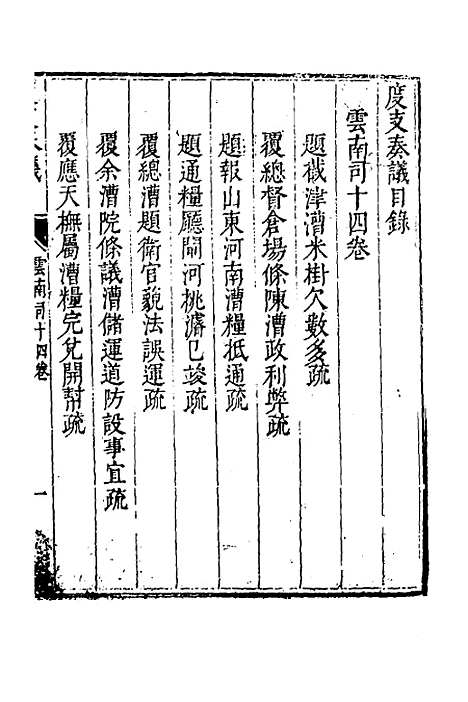 度支奏議目錄
雲南司十四卷
題截津漕米掛欠數多疏
覆總督倉場條陳漕政利弊疏
題報山東河南漕糧抵通疏
題通糧廳閘河挑濬已竣疏
覆總漕題衛官藐法誤運疏
覆余漕院條議漕儲運道防設事宜疏
覆應天撫屬漕糧完兌開幫疏
雲南司十四卷
一